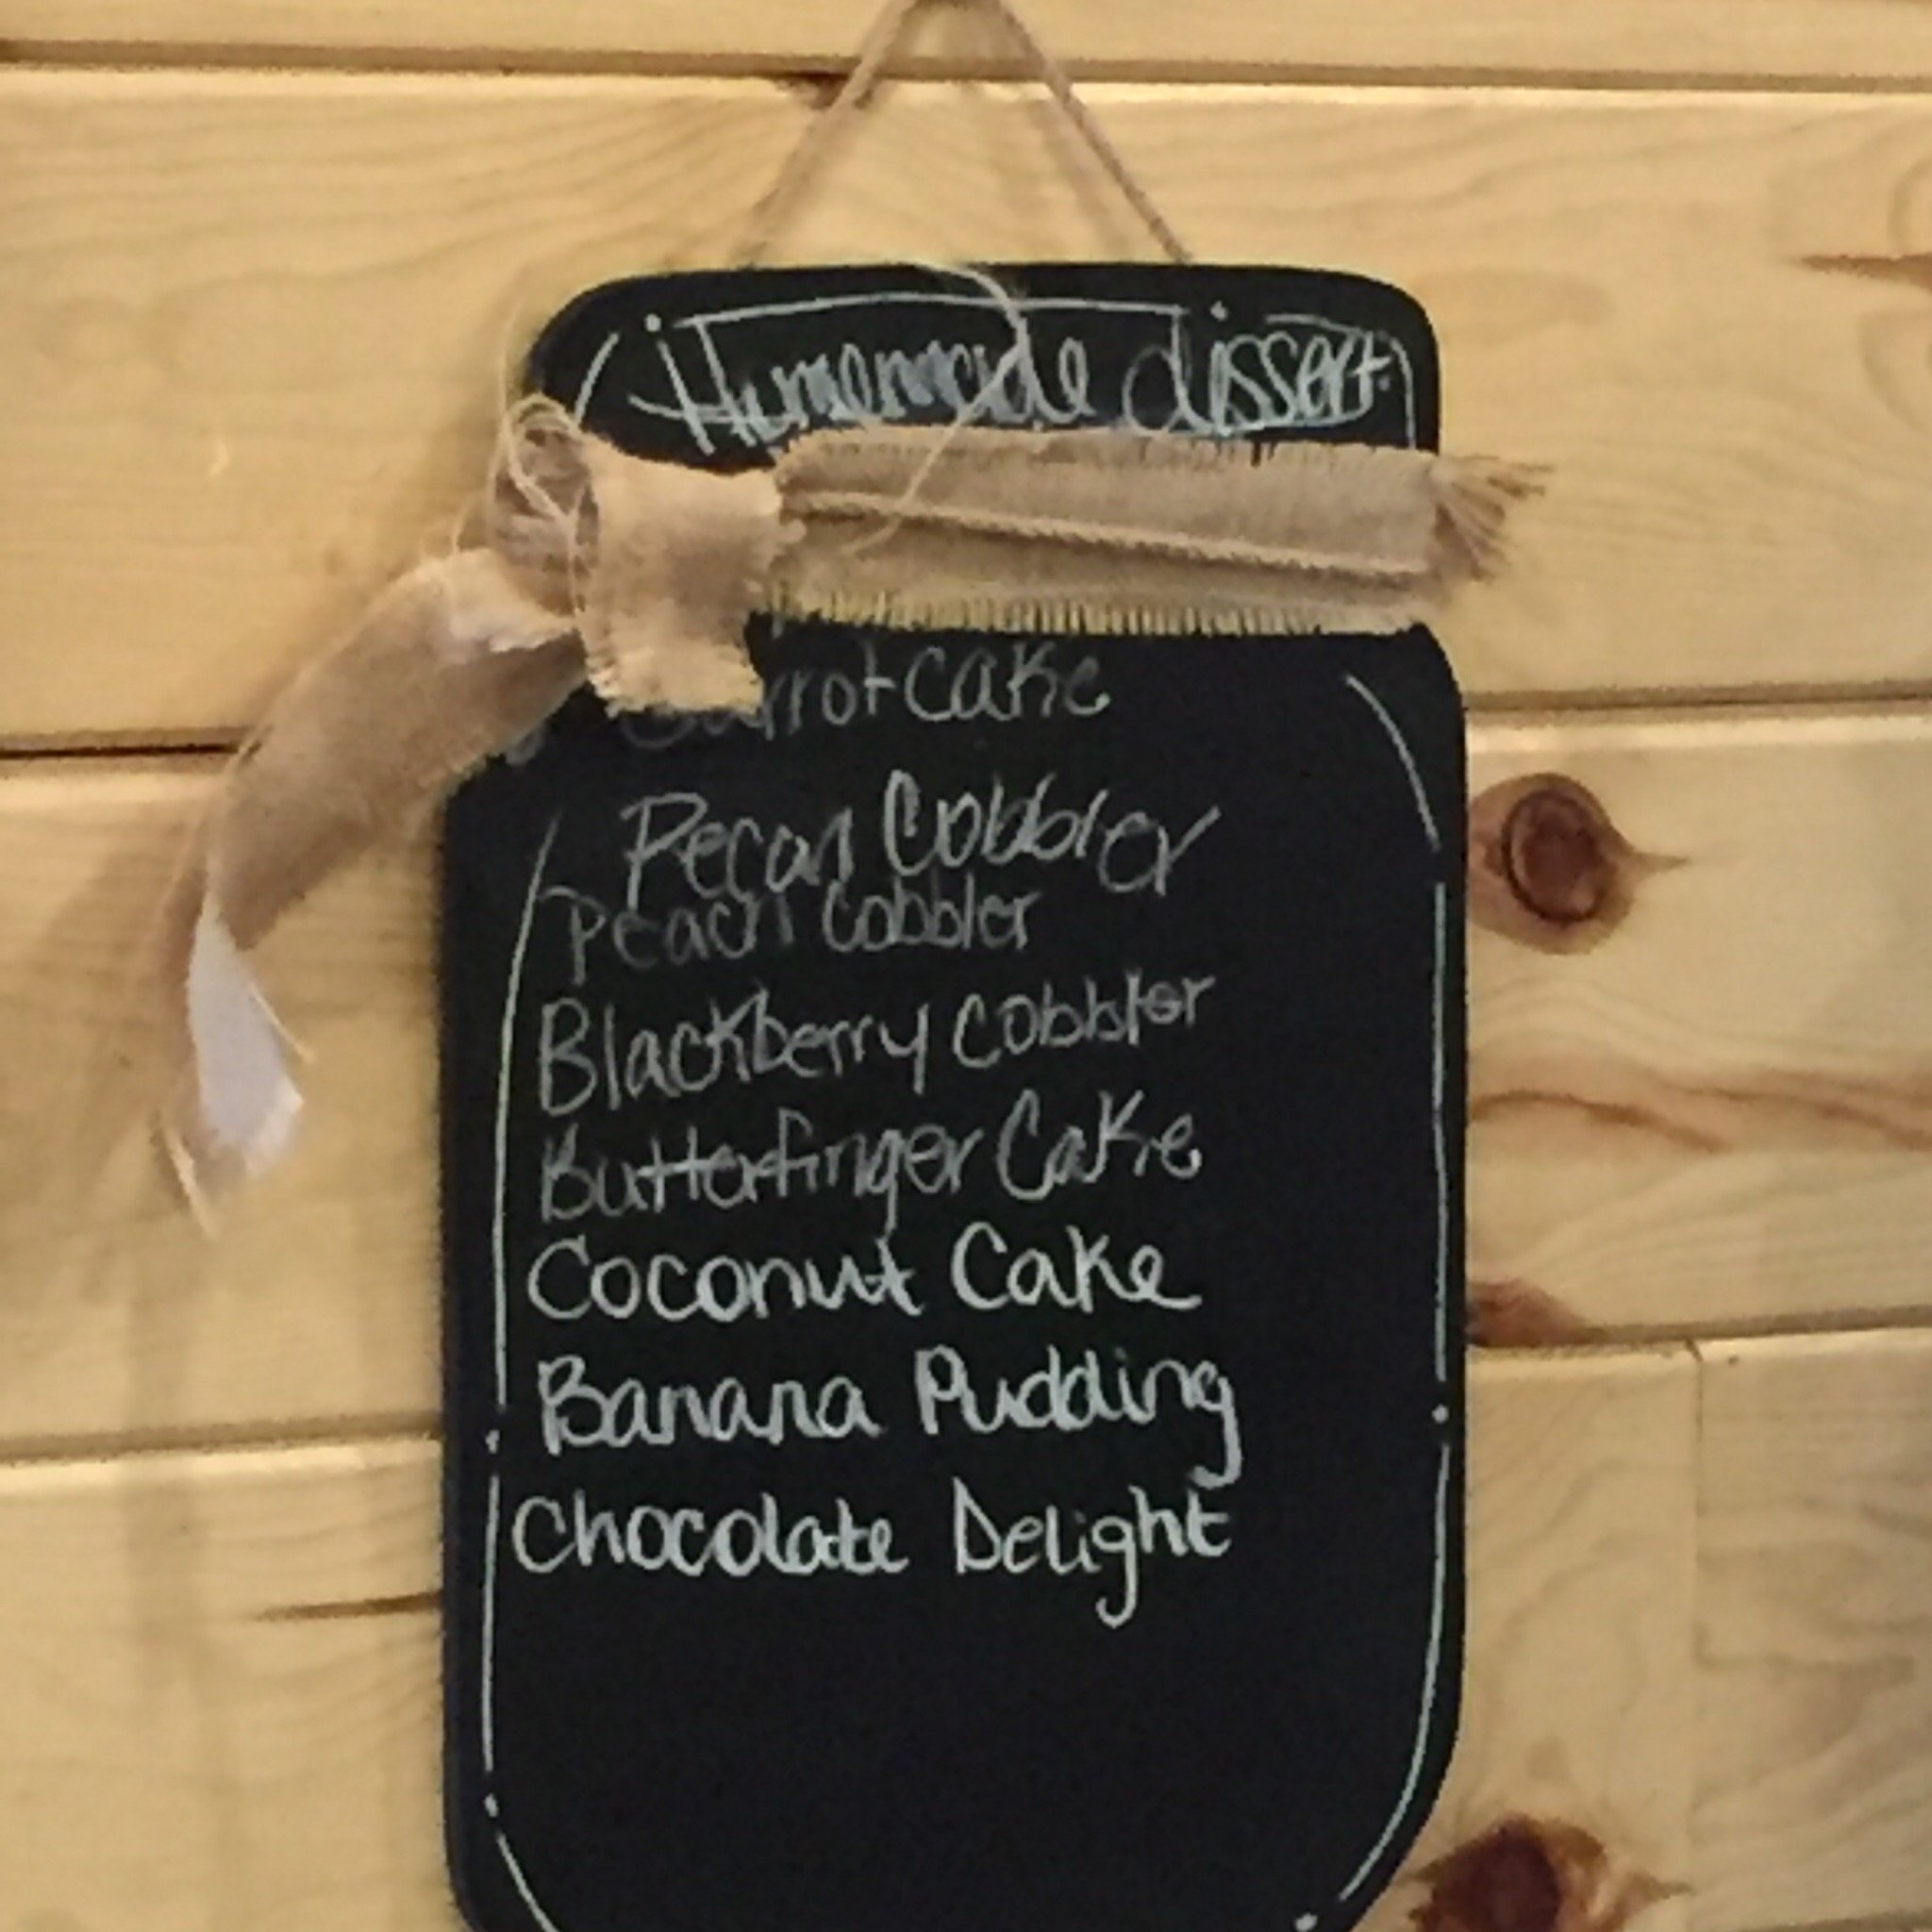 Homemade dissert
Carrot cake
Pecan Cobbler
Peach Cobbler
Blackberry cobbler
Butterfinger Cake
Coconut Cake
Banana Pudding
Chocolate Delight